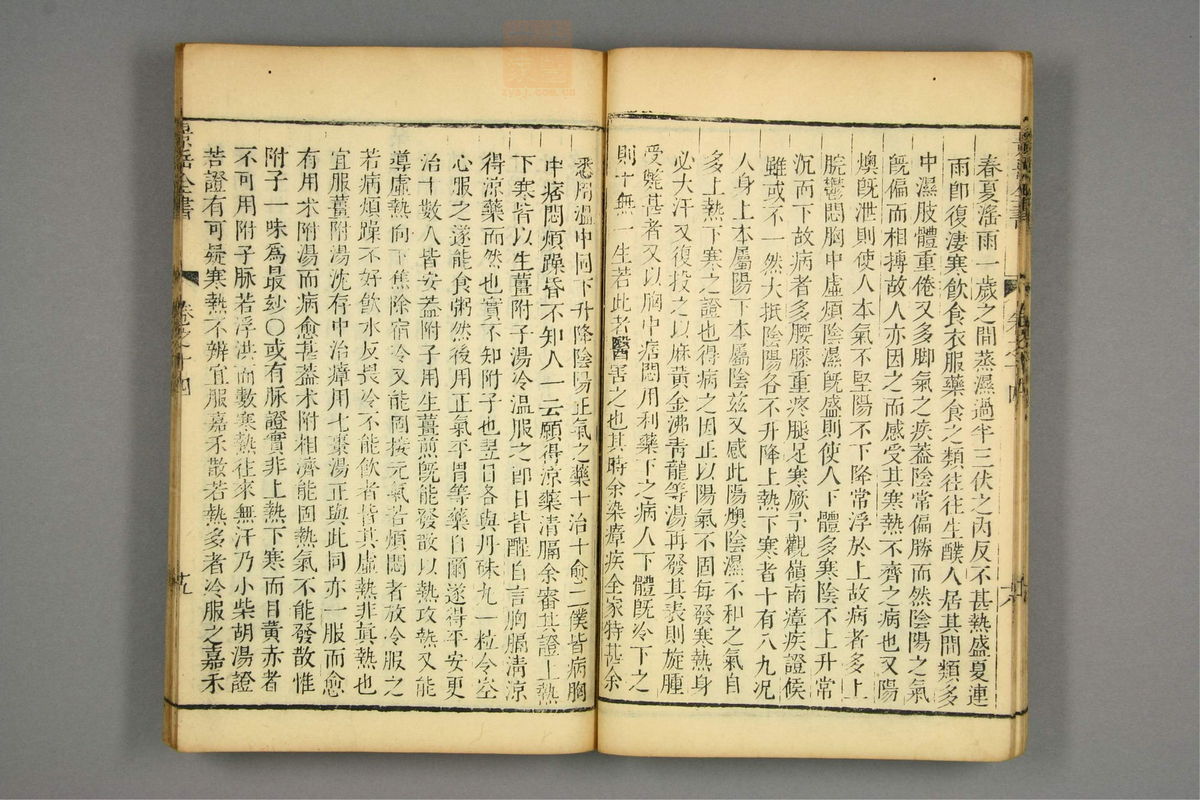 春夏滛雨一歲之間蒸濕過半三伏之內反不甚熱盛夏連
雨卽復淒寒飲食衣服藥食之類往往生醭人居其間類多
中濕肢體重倦又多脚氣之疾葢陰常偏勝而然陰陽之氣
旣偏而相搏故人亦因之而感受其寒熱不齊之病也又陽
燠旣泄則使人本氣不堅陽不下降常浮於上故病者多上
脘鬱悶胸中虛煩陰濕旣盛則使人下體多寒陰不上升常
沉而下故病者多腰膝重疼腿足寒厥予觀嶺南瘴疾證候
雖或不一然大抵陰陽各不升降上熱下寒者十有八九況
人身上本屬陽下本屬陰兹又感此陽燠陰濕不和之氣自
多上熱下寒之證也得病之因正以陽氣不固每發寒熱身
必大汗又復投之以麻黃金沸青龍等湯再發其表則旋腫
受斃甚者又以胸中痞悶用利藥下之病人下體旣冷下之
則十無一生若此者醫害之也其時余染瘴疾全家特甚余
悉用溫中固下升降陰陽正氣之藥十治十愈二僕皆病胸
中痞悶煩躁昏不知人一云願得涼藥清膈余審其證上熱
下寒皆以生薑附子湯冷溫服之卽日皆醒自言胸膈清涼
得涼藥而然也實不知附子也翌日各與丹硃丸一粒令空
心服之遂能食粥然後用正氣平胃等藥自爾遂得平安更
治十數人皆安葢附子用生薑煎旣能發散以熱攻熱又能
導虛熱向下焦除宿冷又能固接元氣若煩悶者放冷服之
若病煩躁不好飲水反畏冷不能飲者皆其虛熱非眞熱也
宜服薑附湯沈存中治瘴用七棗湯正與此同亦一服而愈
有用术附湯而病愈甚葢术附相濟能固熱氣不能發散惟
附子一味爲最玅〇或有脉證實非上熱下寒而目黃赤者
不可用附子脉若浮洪而數寒熱往來無汗乃小柴胡湯證
若證有可疑寒熱不辨宜服嘉禾散若熱多者冷服之嘉禾
景岳全書
卷之十四
十九
zysj.com.cn